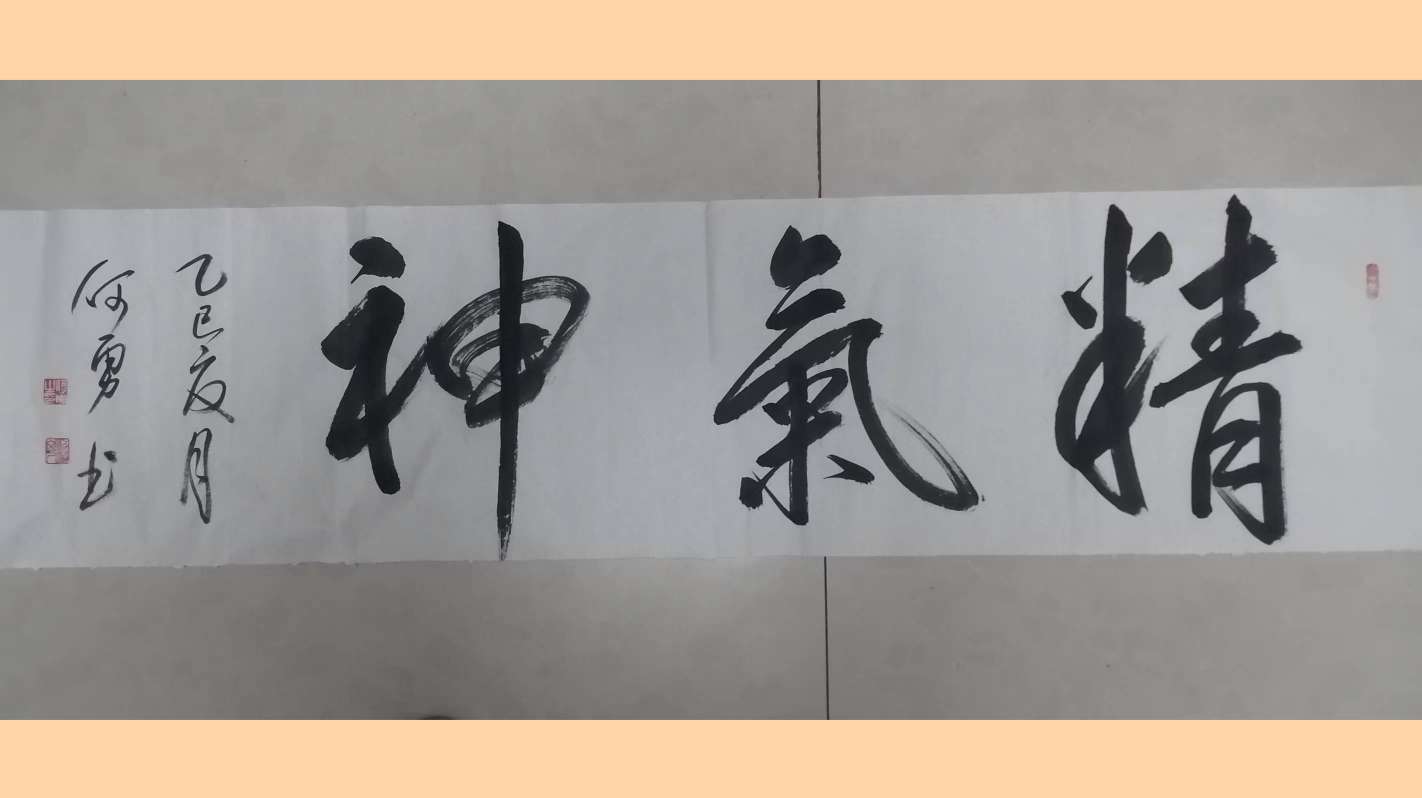 精氣神
乙巳夏月
何勇书